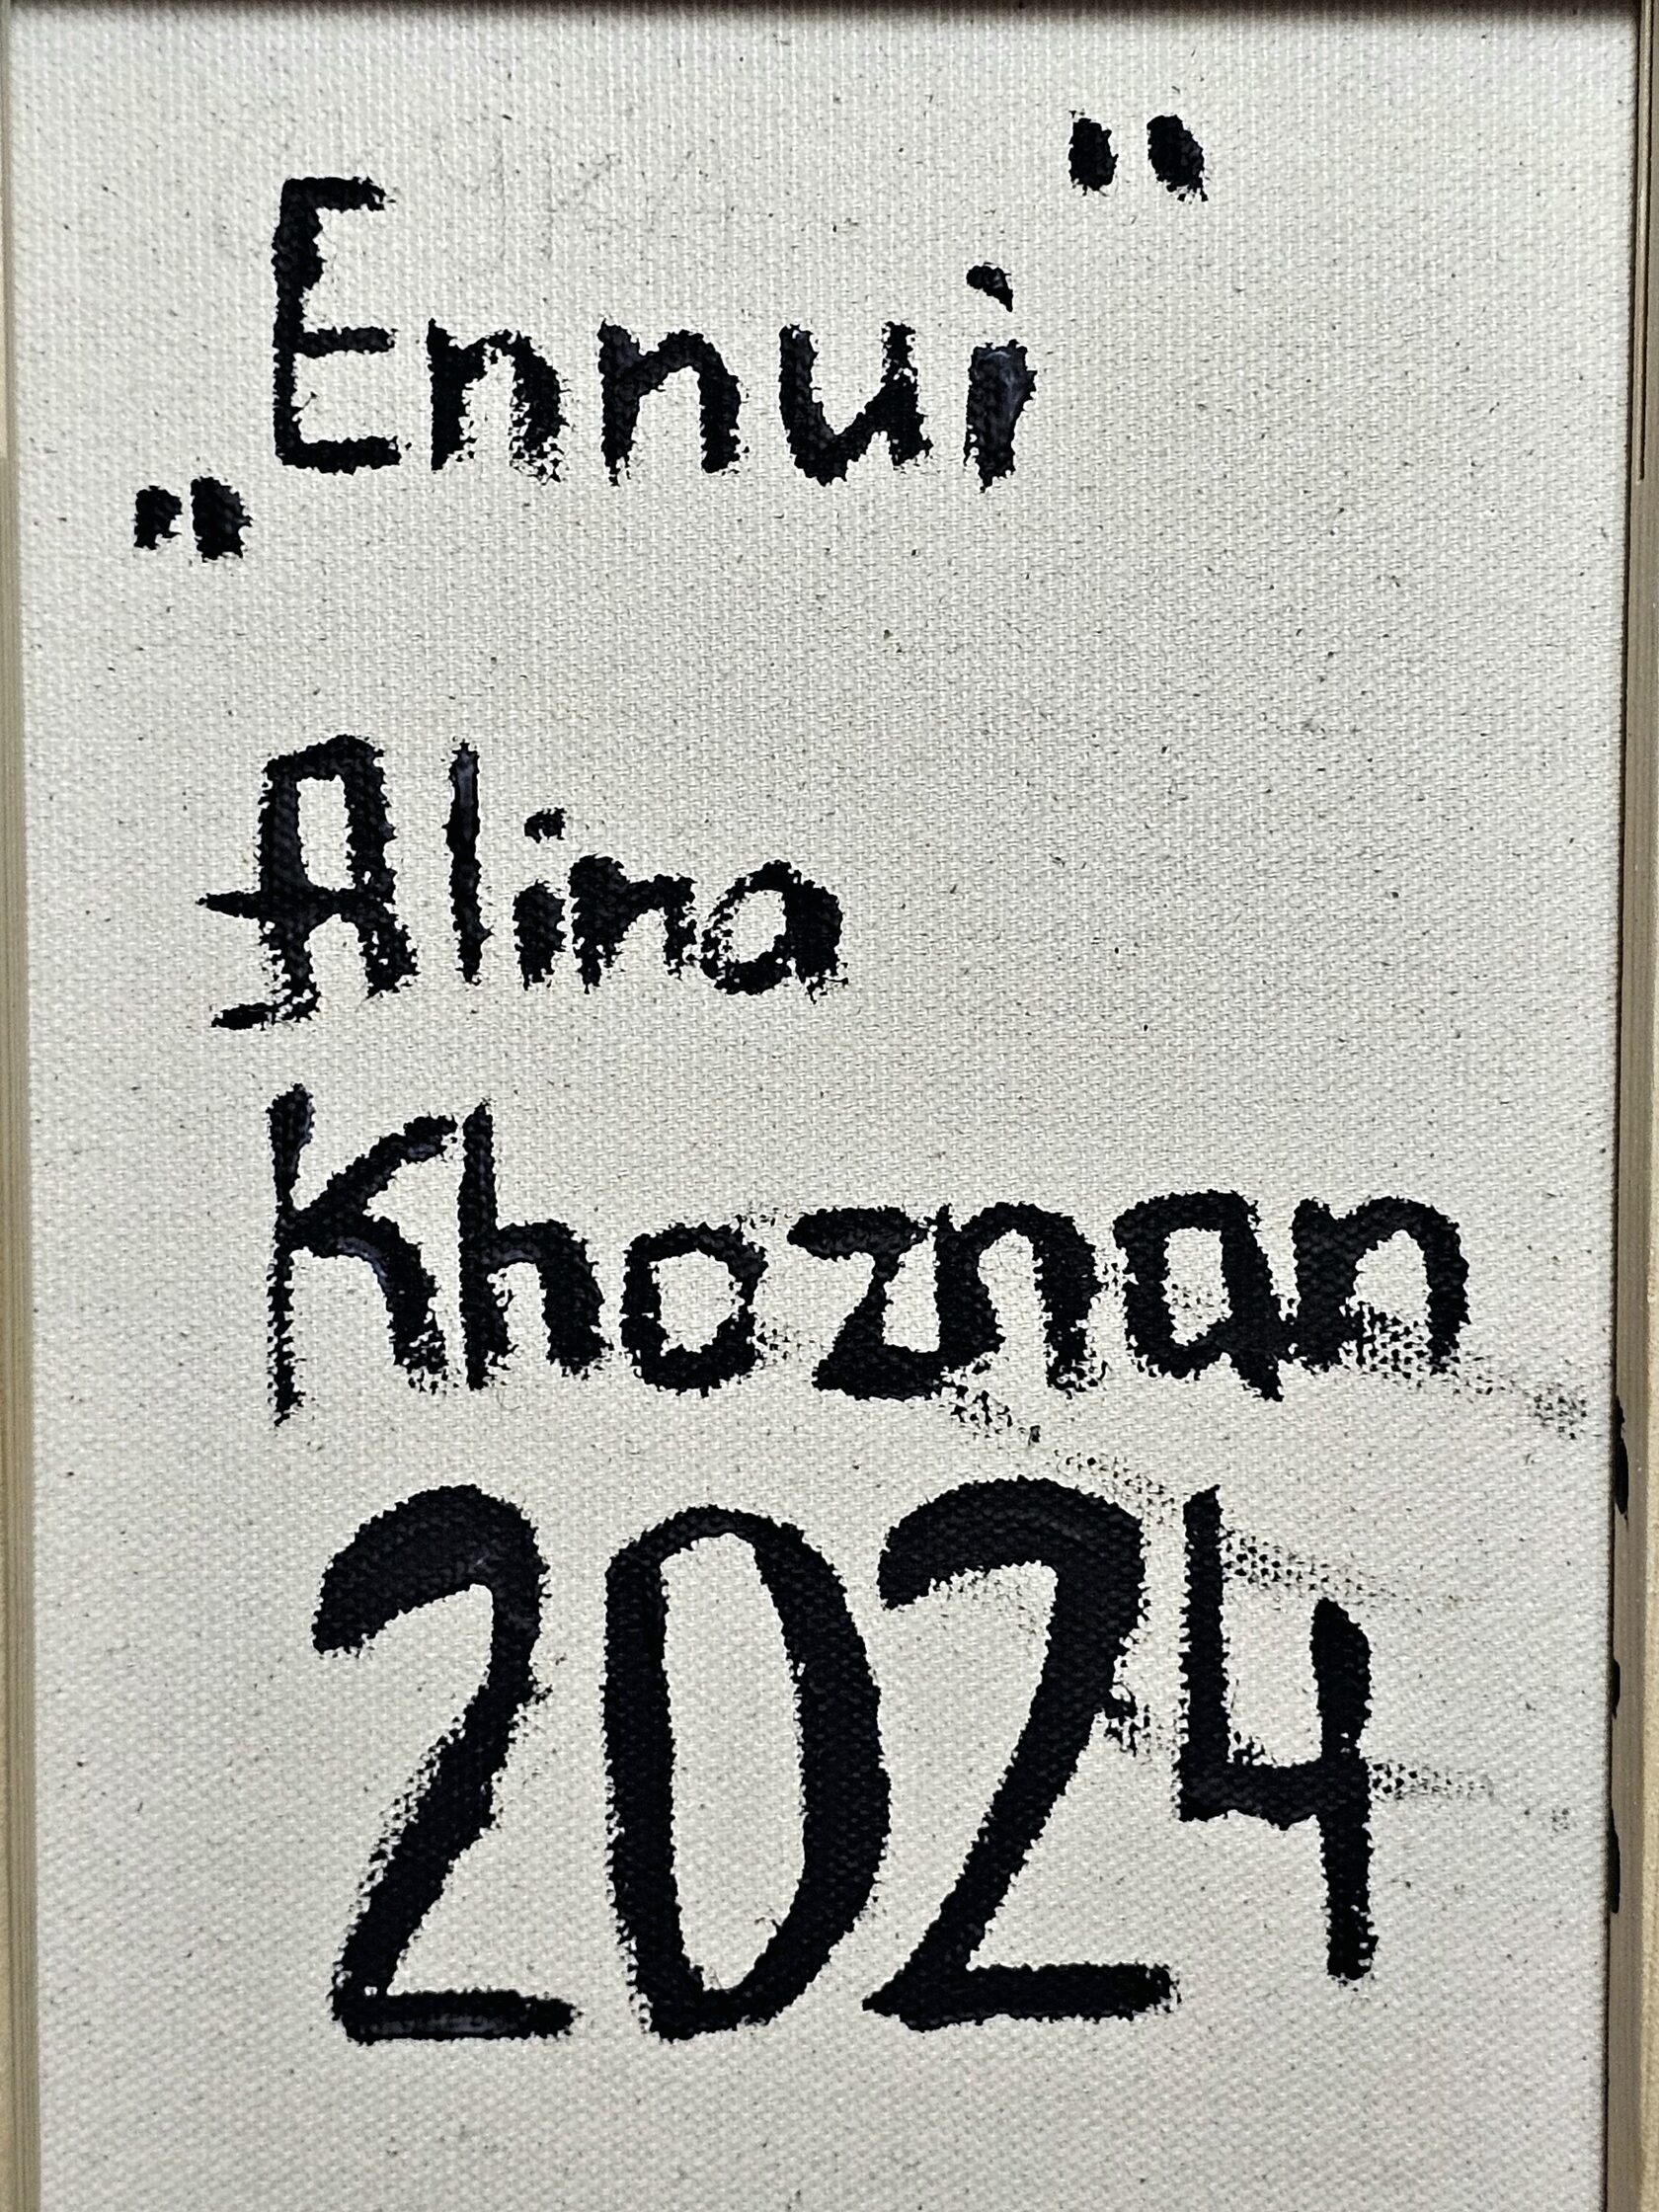 „Ennui“
Alina
Khoznan
2024